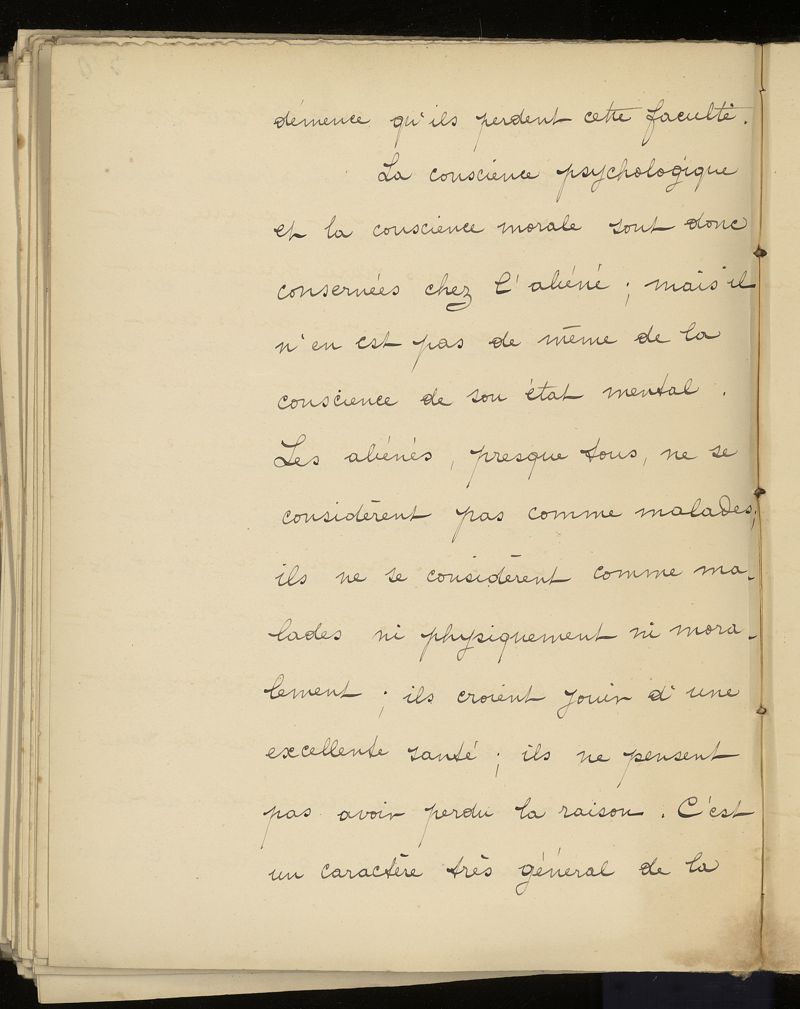 démence qu'ils perdent cette faculté.
La conscience psychologique
et la conscience morale sont donc
conservées chez l'aliéné ; mais il
n'en est pas de même de la
conscience de son état mental .
Les aliénés , presque tous, ne se
considèrent pas comme malades;
ils ne se considèrent comme ma-
lades ni physiquement ni mora-
lement ; ils croient jouir d'une
excellente santé ; ils ne pensent
pas avoir perdu la raison . C'est
un caractère très général de la